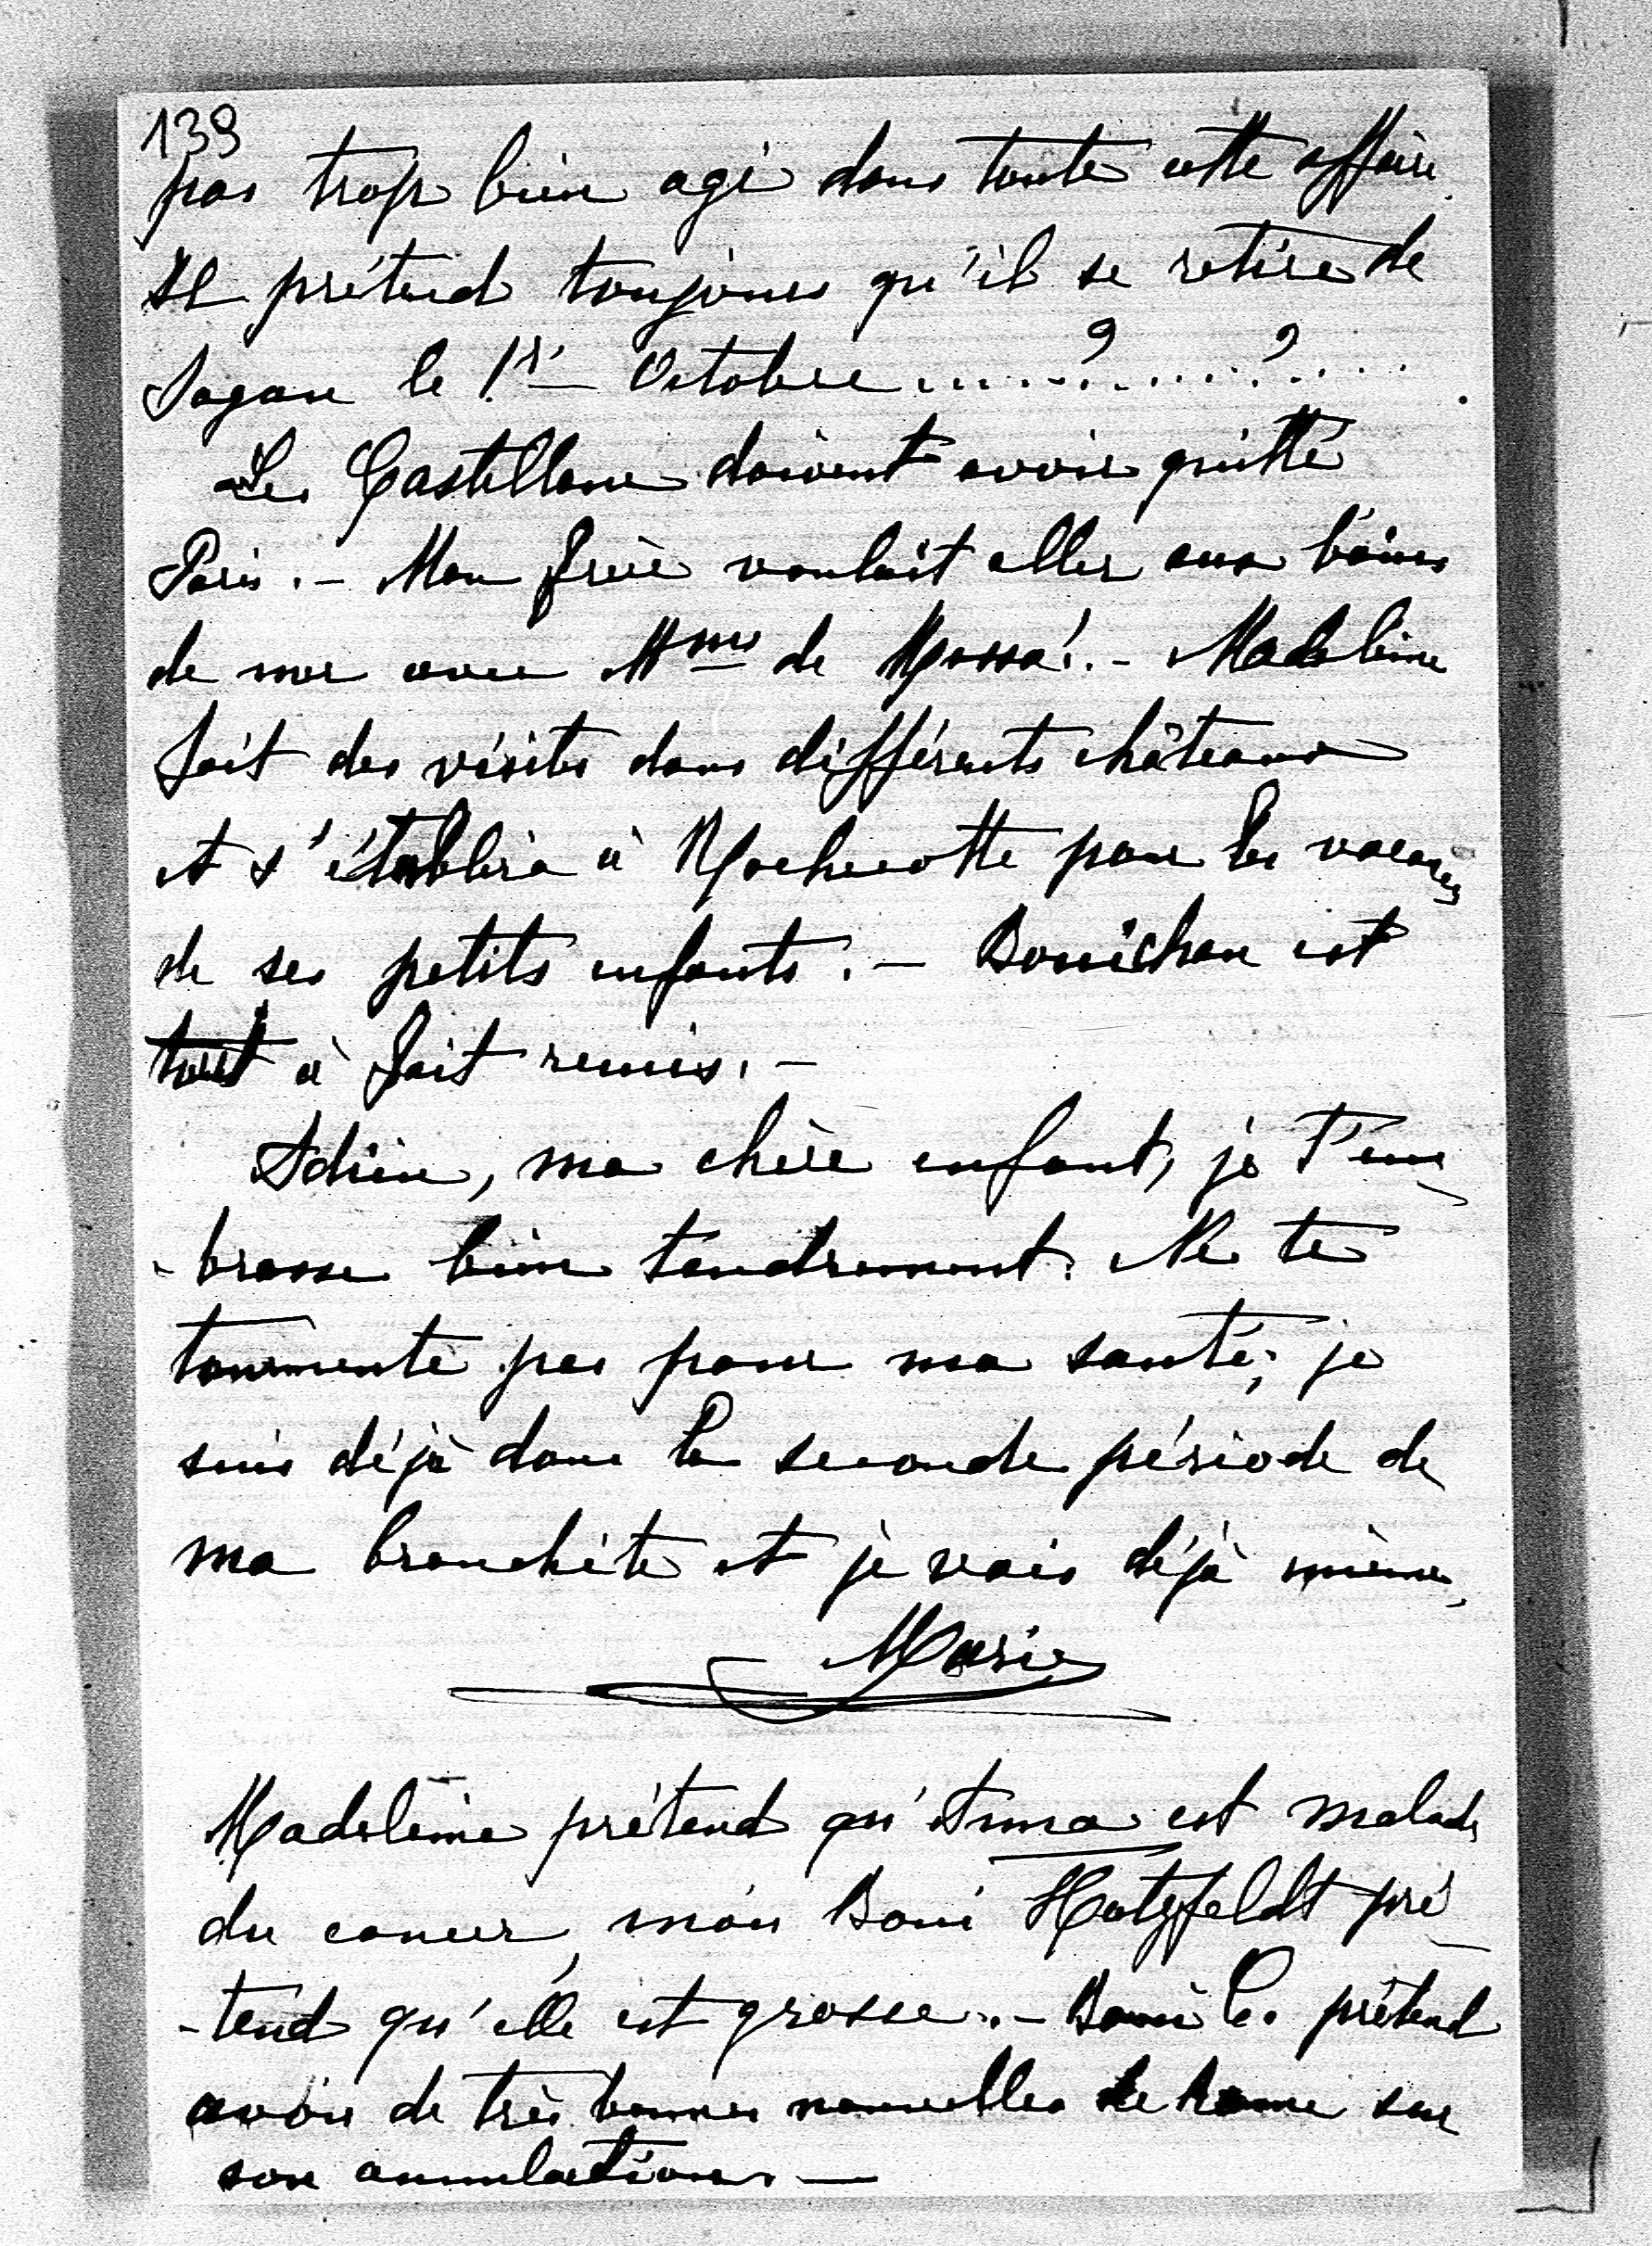 139
pas trop bien agi dans toute cette affaire.
Il prétend toujours qu'il se retire de
Sagan le 1er Octobre.....?.....?.....
Les Castellane doivent avoir quitté
Paris. - Mon frère voulait aller aux bains
de mer avec Mme de - Madeleine
fait des visites dans différents châteaux
et s'établira à Rochecotte pour les vacances
de ses petits enfants. - Bonichon est
tout à fait remis. -
Adieu, ma chère enfant, je t'em
-brasse bien tendrement. Ne te
tourmente pas pour ma santé; je
suis déjà dans la seconde période de
ma bronchite et je vais déjà mieux,
Marie
Madeleine prétend qu'Anna est malade
du cancer, mais Boni Hatzfeldt pré
-tend qu'elle est grosse. - Boni C. prétend
avoir de très bonnes nouvelles de Rome sur
son annulation. -